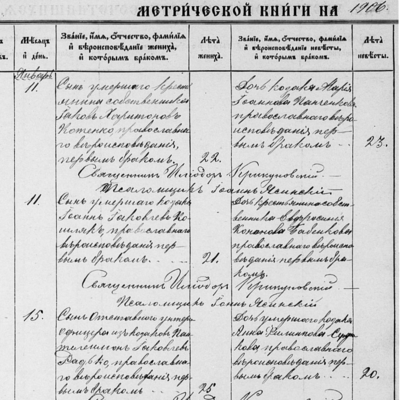 МЕТРИЧЕСКОЙ КНИГИ НА 1906.
Мѣсяцъ и день.
Званіе, имя, отчество, фамилія и вѣроисповѣданіе жениха, и которымъ бракомъ.
Лѣта жениха.
Званіе, имя, отчество, фамилія и вѣроисповѣданіе невѣсты, и которымъ бракомъ.
Лѣта невѣсты.
Январь
11.
Сынъ умершаго крест
янина собственника
Іаковъ Харитоновъ
Котенко, православна
го вѣроисповѣданія,
первымъ бракомъ.
22.
Дочь козака Марія
Іоаннова
православнаго вѣро
исповѣданія, пер
вымъ бракомъ.
23.
Священникъ Иліодоръ
Псаломщикъ Іоаннъ Ясинскій
11.
Сынъ умершаго козака
Іоаннъ Іаковлевъ Ко
шлякъ, православнаго
вѣроисповѣданія, пер
вымъ бракомъ.
21.
Дочь крестьянина собст
венника Евфросинія
Бабенкова
православнаго вѣроиспо
вѣданія первымъ бра
комъ.
Священникъ Иліодоръ
Псаломщикъ Іоаннъ Ясинскій
15.
Сынъ отставного унтеръ
офицера изъ козаковъ Пан
телеимонъ Іаковлевъ
православна
го вѣроисповѣданія, пер
вымъ бракомъ
25
Дочь умершаго козака
Анна Филиппова
православнаго
вѣроисповѣданія, пер
вымъ бракомъ.
20.